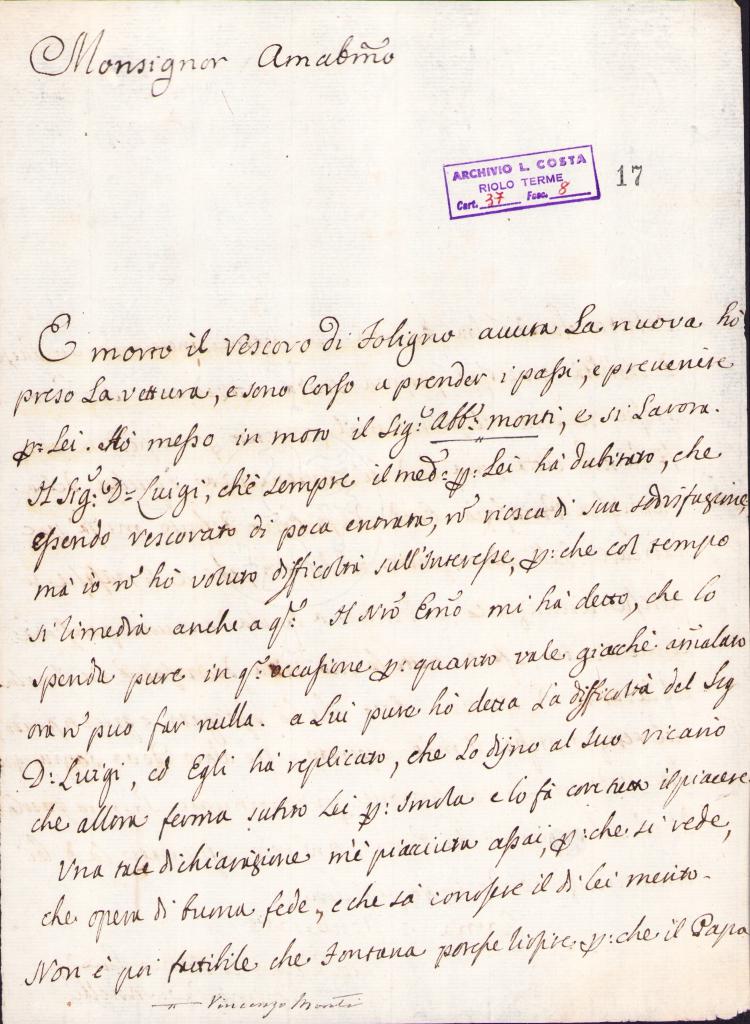 Monsignor Amabm̃o
ARCHIVIO L. COSTA
RIOLO TERME
Cart. 37 Fasc. 8
17
E morto il Vescovo di Foligno avuta La nuova hò
preso La vettura, e sono Corso a prender i passi, e prevenire
p: Lei. Hò messo in moto il Sig:r Abb:e monti, e si Lavora.
Il Sig:r D:r Luigi, ch'è sempre il med:o p: Lei ha dubitato, che
essendo vescovato di poca entrata, nõ riesca di sua sodisfazione,
mà io nõ hò voluto difficoltà sull'Interesse, p:che col tempo
si rimedia anche a q:o Il Nr̃o Em̃o mi hà detto, che lo
spenda pure in q:a occasione p: quanto vale giacchè am̃alato
ora nõ puo far nulla. a Lui pure hò detta La difficoltà del Sig
D: Luigi, ed Egli hà replicato, che Lo dijno al Suo vicario
che allora ferma subito Lei p: Imola e lo fà con tutto il piacere.
Una tale dichiarazione m'è piacciuta assai, p:che si vede,
che opera di buona fede, e che sà conoscere il di lei merito.
Non è poi fattibile che Fontana p:che il Papa
Vincenzo Monti